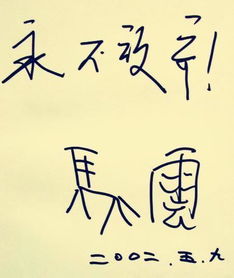 永不放弃！
馬雲
二〇〇二.五.九